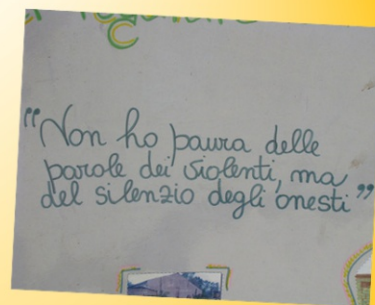 "Non ho paura delle
parole dei violenti, ma
del silenzio degli onesti"